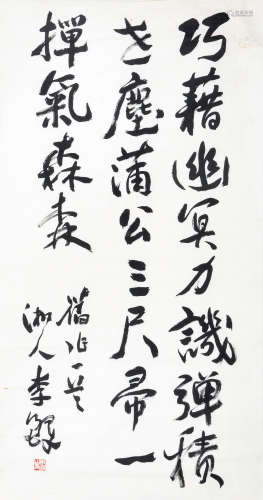 巧藉幽冥力譏弹積
世塵蒲公三尺帚一
撣氣森森
舊作一首
湘人李鐸